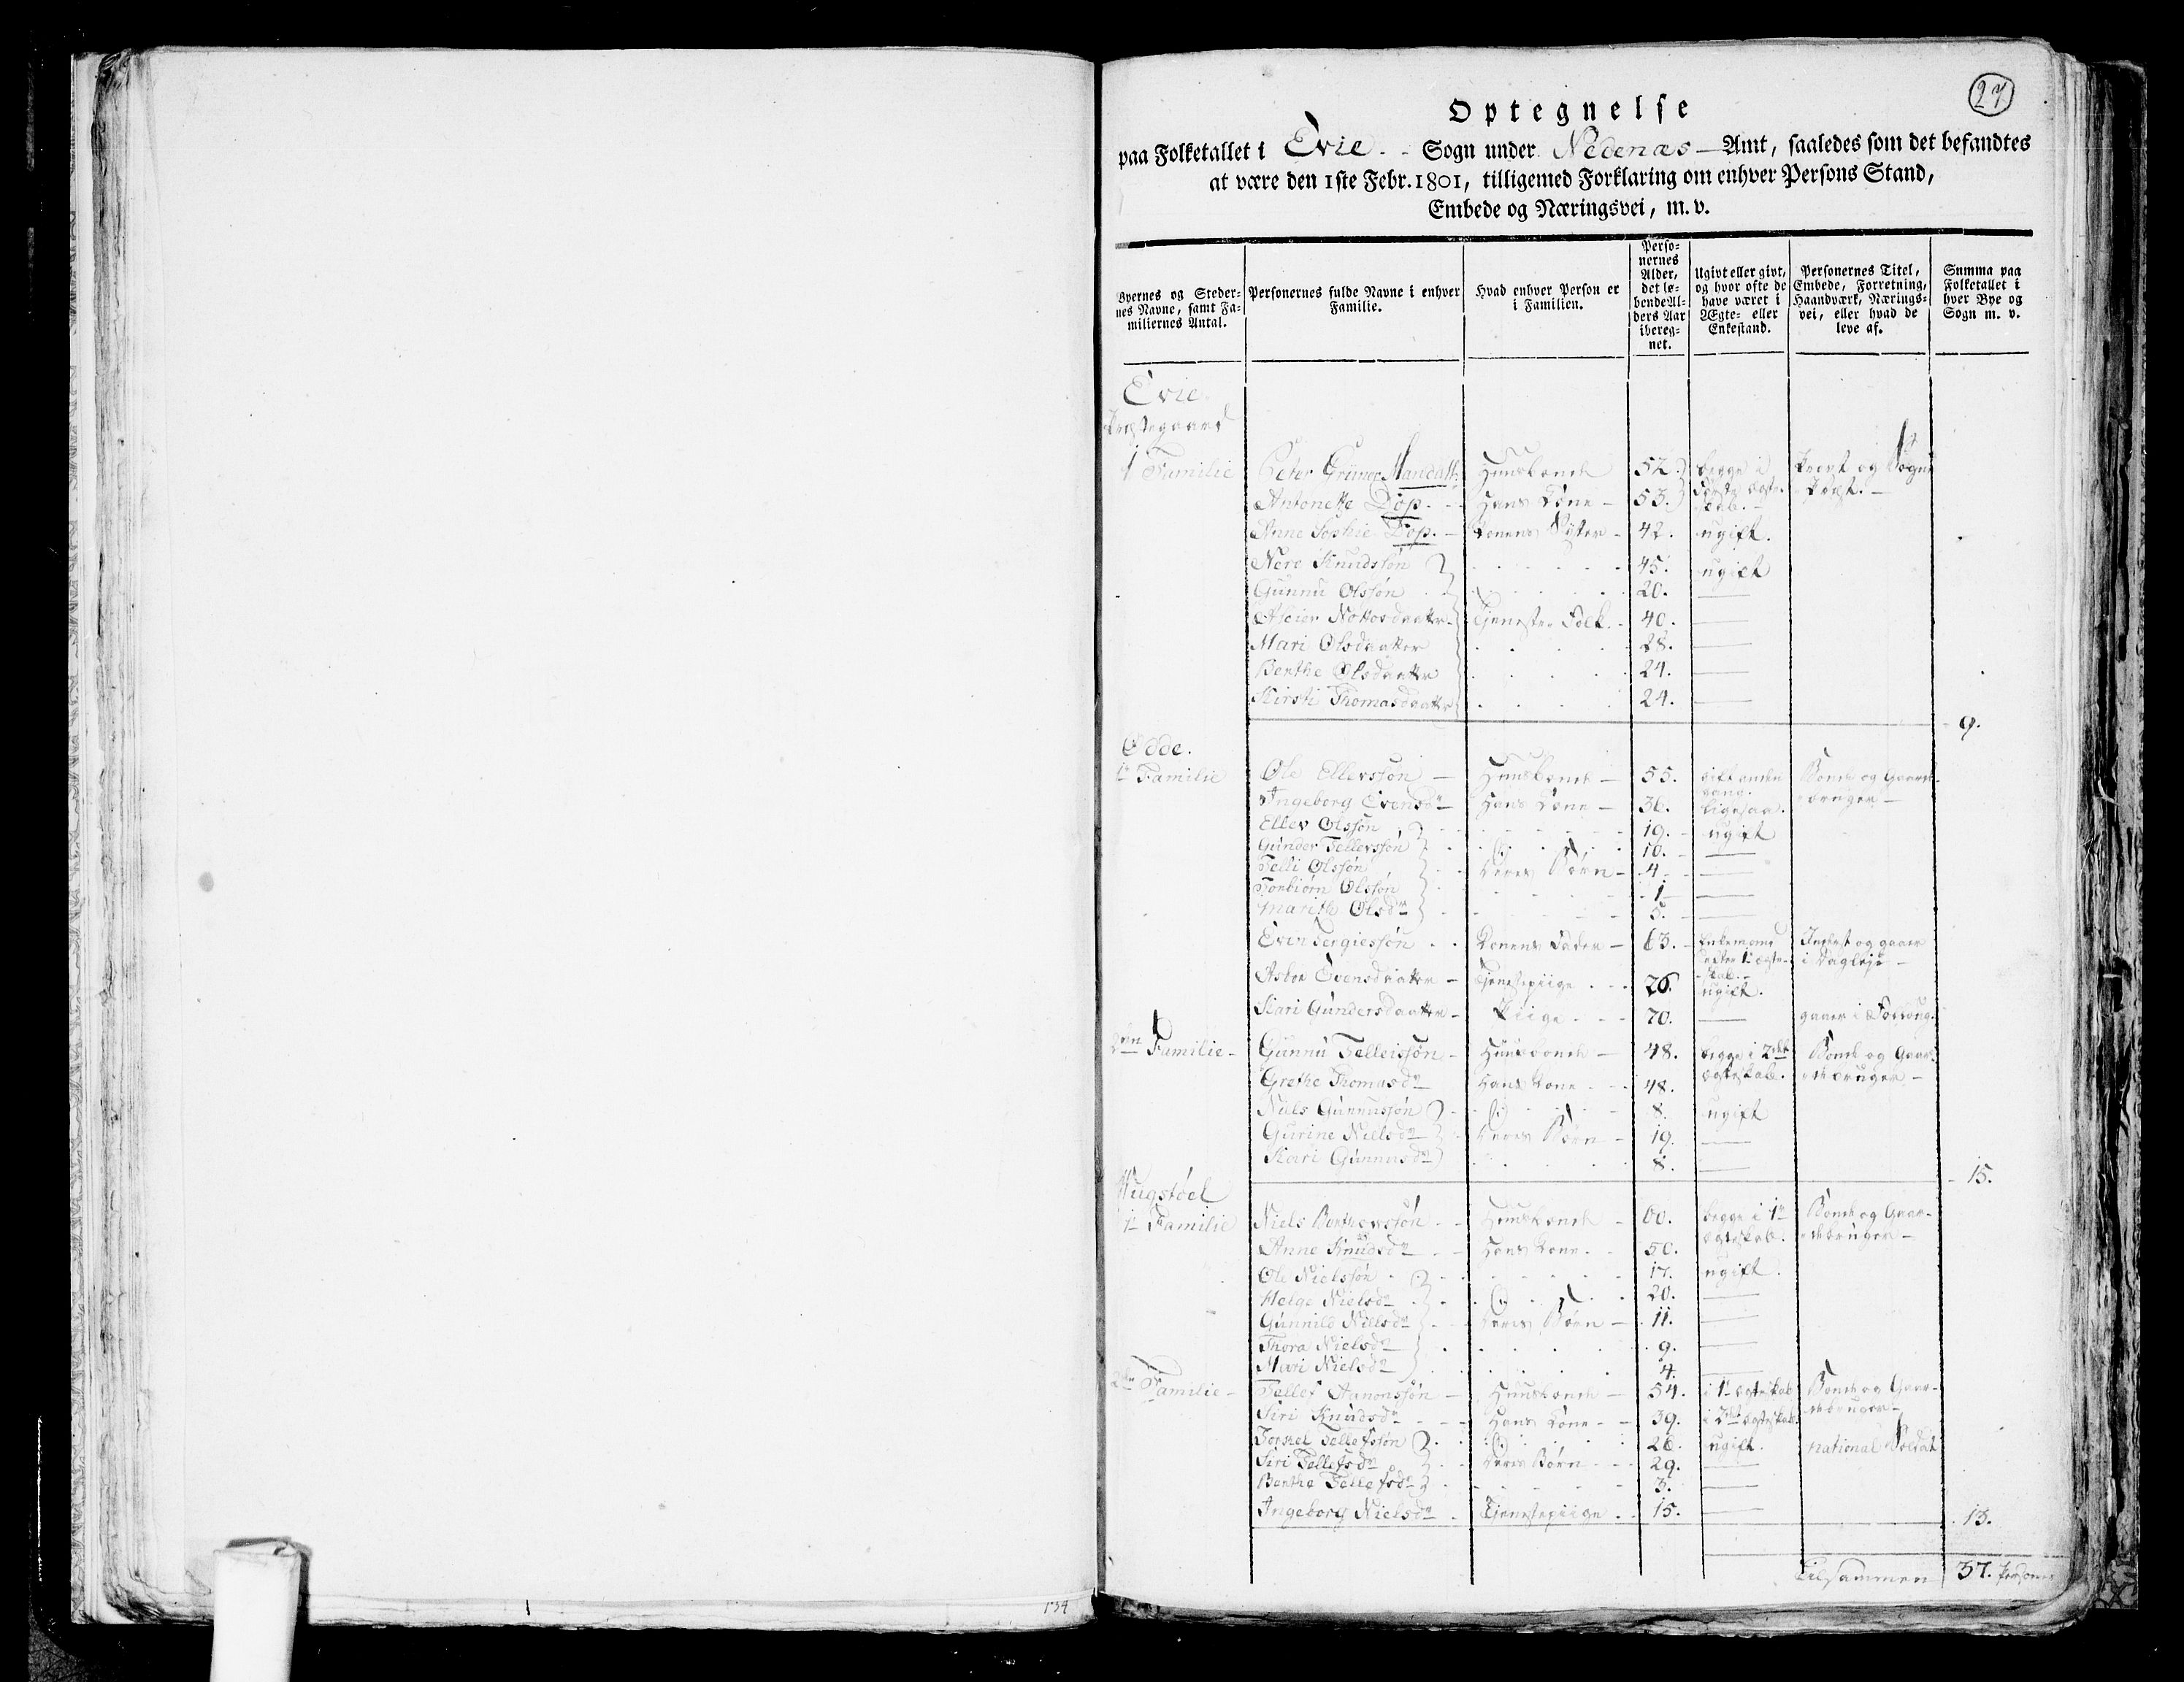 27
Optegnelse
paa Folketallet i Evie Sogn under Nedenæs Amt, saaledes som det befandtes
at være den 1ste Febr. 1801, tilligemed Forklaring om enhver Persons Stand,
Embede og Næringsvei, m. v.
Byernes og Steder- nes Navne, samt Fa- miliernes Antal. | Personernes fulde Navne i enhver Familie. | Hvad enhver Person er i Familien. | Perso- nernes Alder, det le- bende Al- ders Aar ibereg- net. | Ugivt eller givt, og hvor ofte de have været i Ægte- eller Enkestand. | Personernes Titel, Embede, Forretning, Haandværk, Nærings- vei, eller hvad de leve af. | Summa paa Folketallet i hver Bye og Sogn m. v.
Evie
Præstegaard
1 Familie Peter Grüner Mandall Huusbonde 52. begge i Provst og Sogne
Antonette Dop. Hans Kone 53. første Ægte- Præst.
skab.
Anne Sophie Dop. Konens Syster 42. ugift.
Nere Knudssøn 45. ugift
Gunnu Olssøn 20.
Nottosdaatter Tjeneste Folk 40.
Mari Olsdaatter 28.
Berthe Olsdaatter 24.
Kirsti Thomasdaatter 24.
9.
Odde.
1 Familie Ole Ellevssøn Huusbonde 55. gift anden Bonde og Gaard-
gang.
Ingeborg Evensdr Hans Kone 36. ligesaa. bruger
Ellev Olssøn 19. ugift
Gunder Tellevssøn 10.
Telli Olssøn Deres Børn 4
Torbiørn Olssøn 1
Marithe Olsdr 5.
Even Tergiessøn Konens Fader 63. Enkemand Inderst og gaaer
efter 1 Ægte- i Dagleje
skab.
Asbor Evensdaatter Tjenestepiige 26. ugift.
Kari Gundersdaatter Piige 70. gaaer i
2den Familie Gunnu Telleissøn Huusbonde 48. begge i 2det Bonde og Gaar-
Grethe Thomasdr Hans Kone 48. Ægteskab. debruger
Niels Gunnussøn 8. ugift
Gurine Nielsdr Deres Børn 19.
Kari Gunnusdr 8.
15.
Hugstøel
1 Familie Niels Berthevssøn Huusbonde 60. begge i 1 Bonde og Gaar-
Anne Knudsdr Hans Kone 50. Ægteskab. debruger
Ole Nielssøn 17. ugift.
Helge Nielsdr 20.
Gunnild Nielsdr Deres Børn 11.
Thora Nielsdr 9.
Mari Nielsdr 4.
2den Familie Tellef Aanonssøn Huusbonde 54. i 1 Ægteskab Bonde og Gaar-
Siri Knudsdr Hans Kone 39. i 2det Ægteskab debruger
Torkel Tellefssøn 26. ugift. national Soldat
Siri Tellefsdr Deres Børn 29.
Berthe Tellefsdr 3.
Ingeborg Nielsdr Tjenestepiige 15.
13.
Tilsammen 37. Personer
134